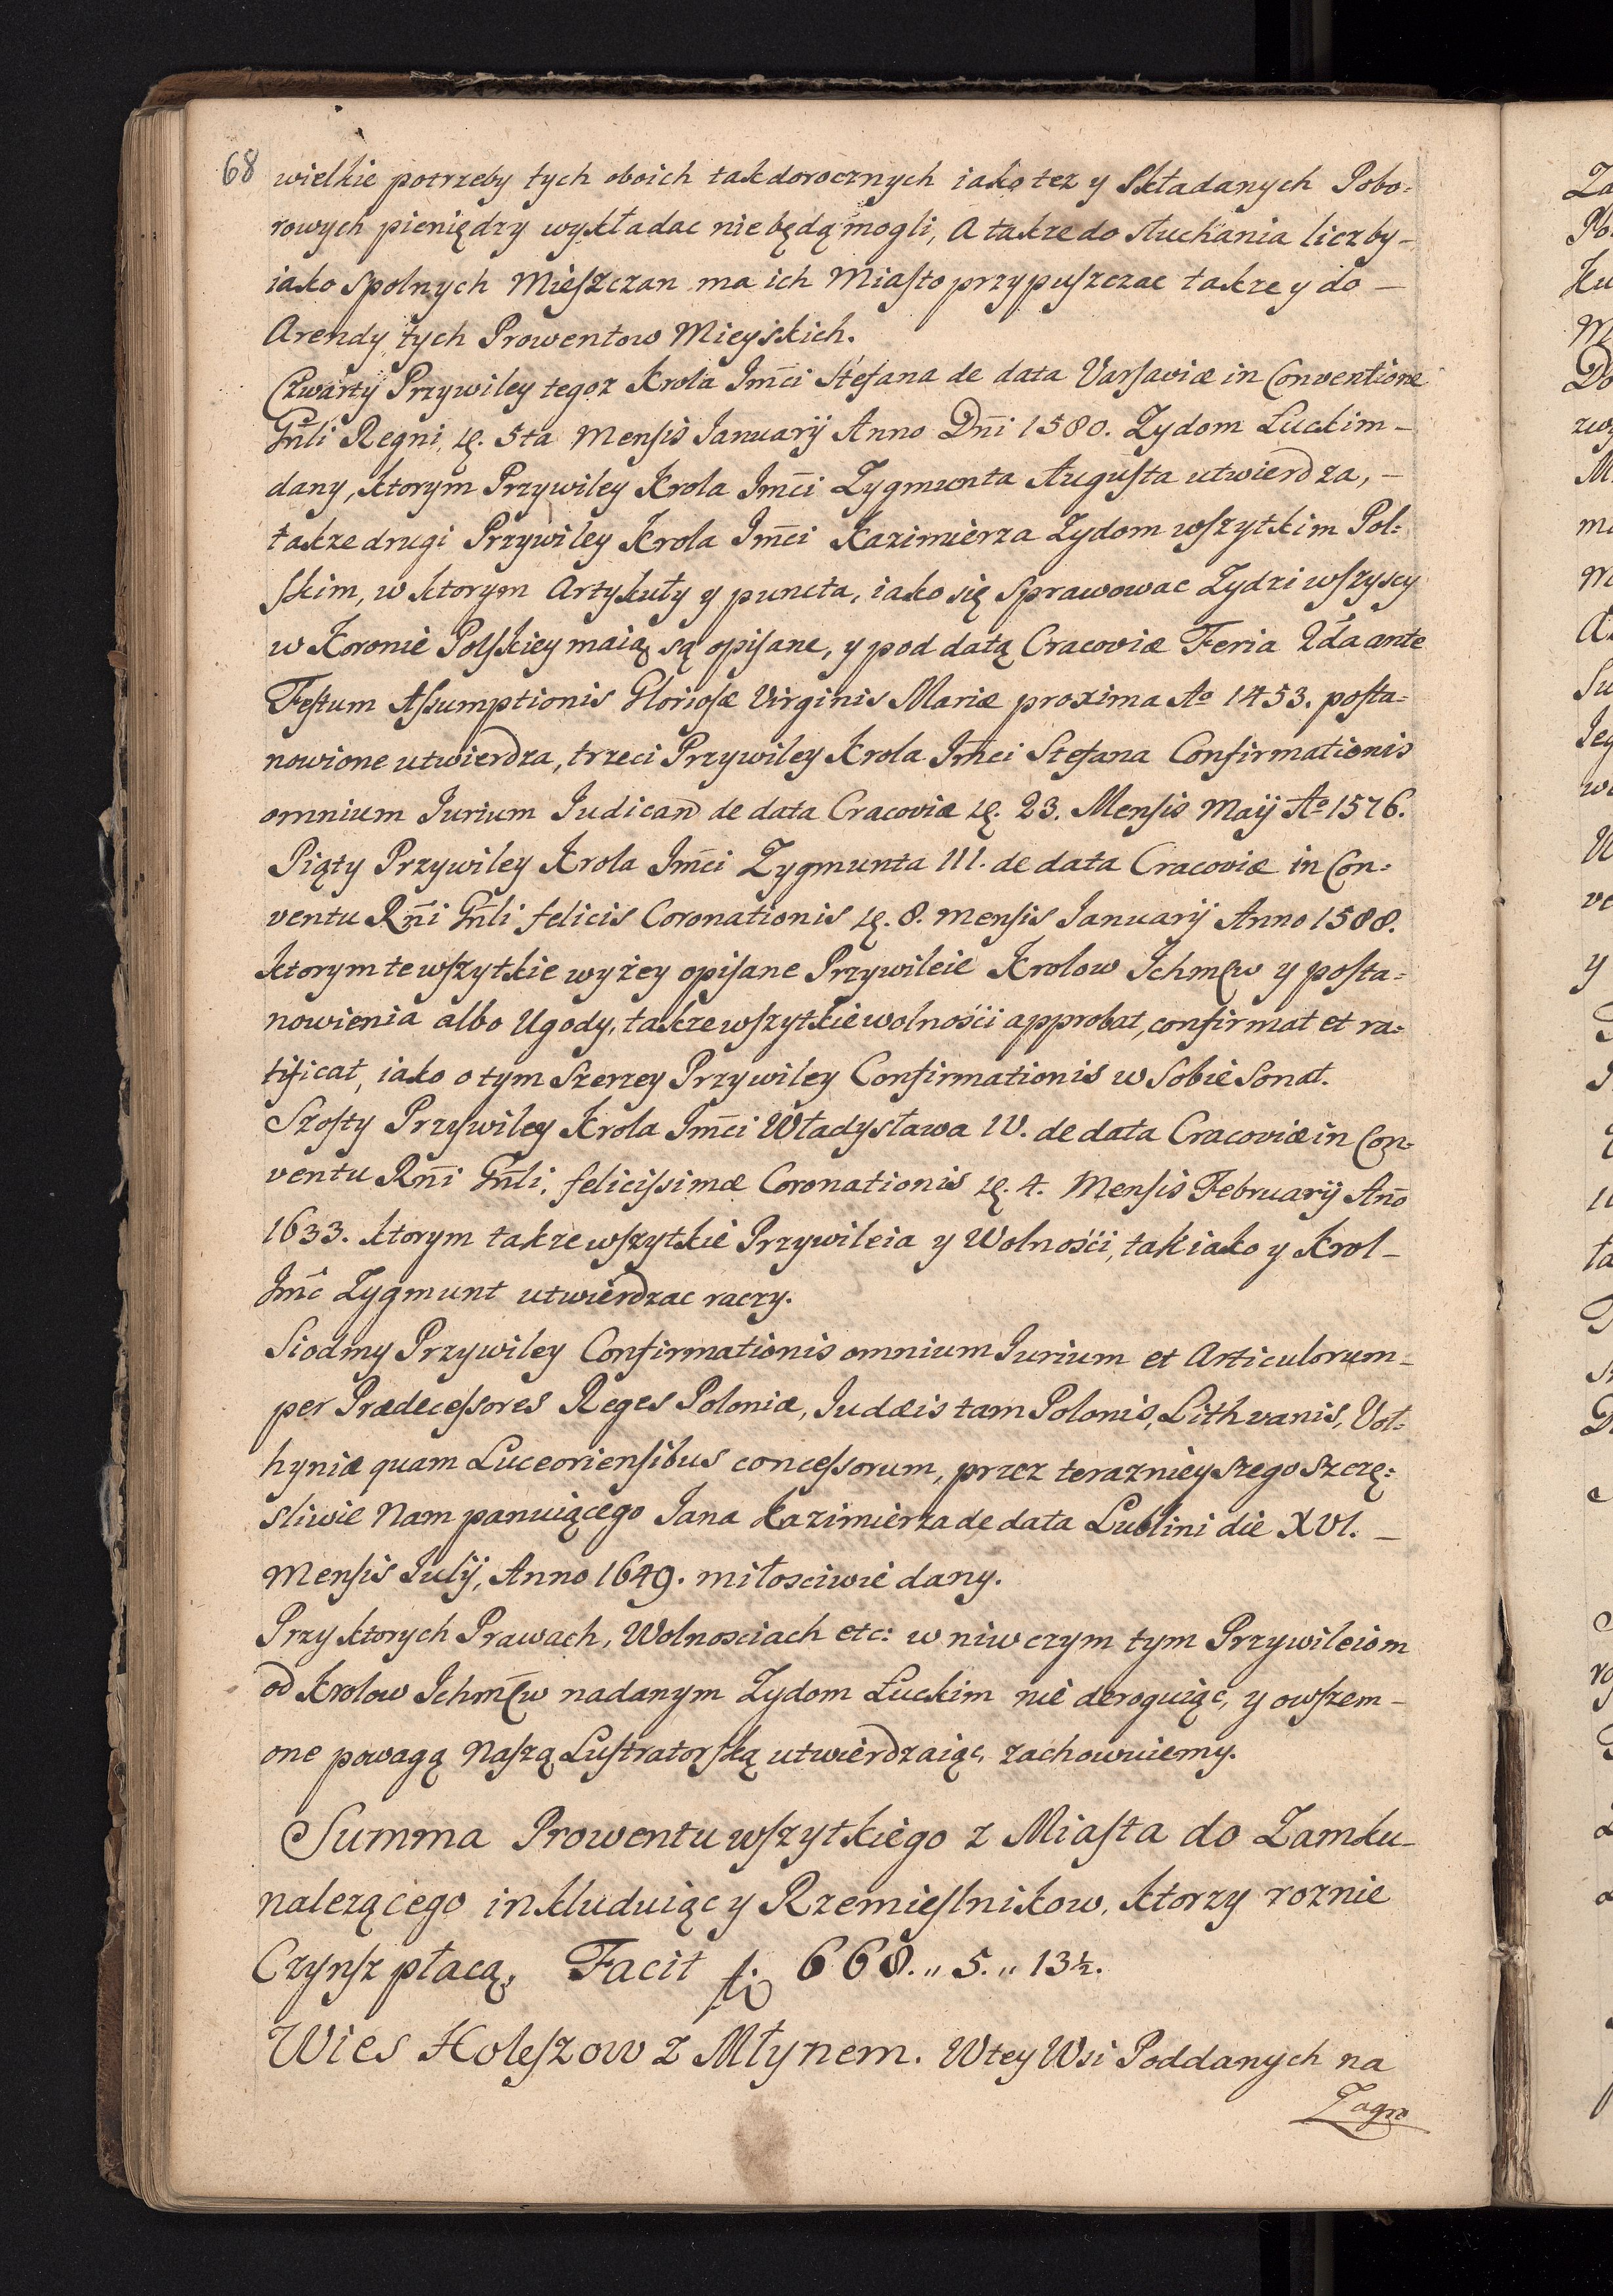 68 wielkie potrzeby tych oboich tak dorocznych iako tez y Składanych Pobo=
rowych pieniędzy wykładac nie będą mogli, A takze do słuchania liczby -
iako Spolnych Mieszczan ma ich Miasto przypuszczac takze y do -
Arendy tych Prowentow Mieyskich.
Czwarty Przywiley tegoz Krola Jmci Stefana de data Varsaviæ in Conventione
Gnli Regni, 5ta Mensis Januarij Anno Dni 1580. Zydom Luckim -
dany, ktorym Przywiley Krola Jmci Zygmunta Augusta utwierdza, -
takze drugi Przywiley Krola Jmci Kazimierza Zydom wszytkim Pol=
skim, w ktorym Artykuły y puncta, iako się Sprawowac Zydzi wszyscy
w Koronie Polskiey maią są opisane, y pod datą Cracoviæ Feria 2da ante
Festum Assumptionis Gloriosæ Virginis Mariæ proxima Ao 1453. posta=
nowione utwierdza, trzeci Przywiley Krola Jmci Stefana Confirmationis
omnium Jurium Judicand de data Cracoviæ 23. Mensis Maij Ao 1576.
Piąty Przywiley Krola Jmci Zygmunta III. de data Cracoviæ in Con=
ventu Rni Gnli felicis Coronationis 8. mensis Januarij Anno 1588.
ktorym te wszytkie wyżey opisane Przywileie Krolow Ichmcw y posta=
nowienia albo Ugody, takze wszytkie wolności approbat, confirmat et ra=
tificat, iako o tym Szerzey Przywiley Confirmationis w Sobie Sonat.
Szosty Przywiley Krola Jmci Władysława IV. de data Cracoviæ in Con=
ventu Rni Gnli, felicissimæ Coronationis 4. Mensis Februarij Ano
1633. ktorym takze wszytkie Przywileia y Wolności, tak iako y Krol -
Jmc Zygmunt utwierdzac raczy.
Siodmy Przywiley Confirmationis omnium Jurium et Articulorum -
per Prædecessores Reges Poloniæ, Judæis tam Polonis, Lithvanis, Vol=
hyniæ quam Luceoriensibus concessorum, przez teraznieyszego szczę=
sliwie Nam panuiącego Jana Kazimierza de data Lublini die XVI. -
Mensis Julij, Anno 1649. miłosciwie dany.
Przy ktorych Prawach, Wolnosciach etc: w niwczym tym Przywileiom
od Krolow Ichmcw nadanym Zydom Łuckim nie deroguiąc, y owszem -
one powagą Naszą Lustratorską utwierdzaiąc, zachowuiemy.
Summa Prowentu wszytkiego z Miasta do Zamku -
nalezącego inkluduiąc y Rzemieslnikow, ktorzy roznie
Czynsz płacą, Facit fl. 668. " 5. " 13½.
Wies Holeszow z Młynem. W tey Wsi Poddanych na
Zagro